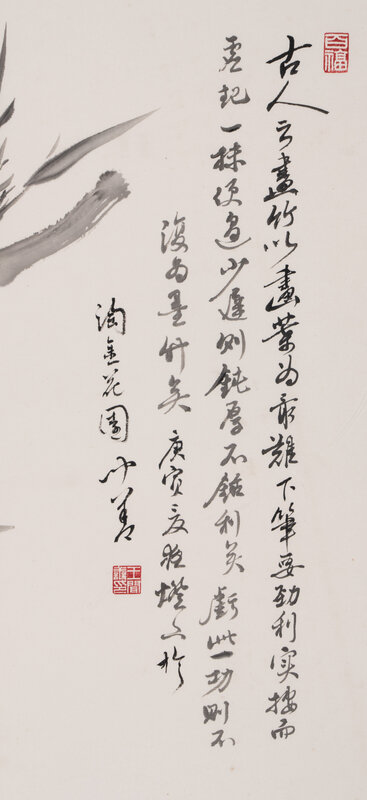 百福
古人云畫竹以畫葉為最難下筆要勁利實按而
虛起一抹便過少遲則鈍厚不銛利矣虧此一功則不
復為墨竹矣庚寅夏夜燈下於
淘金花園